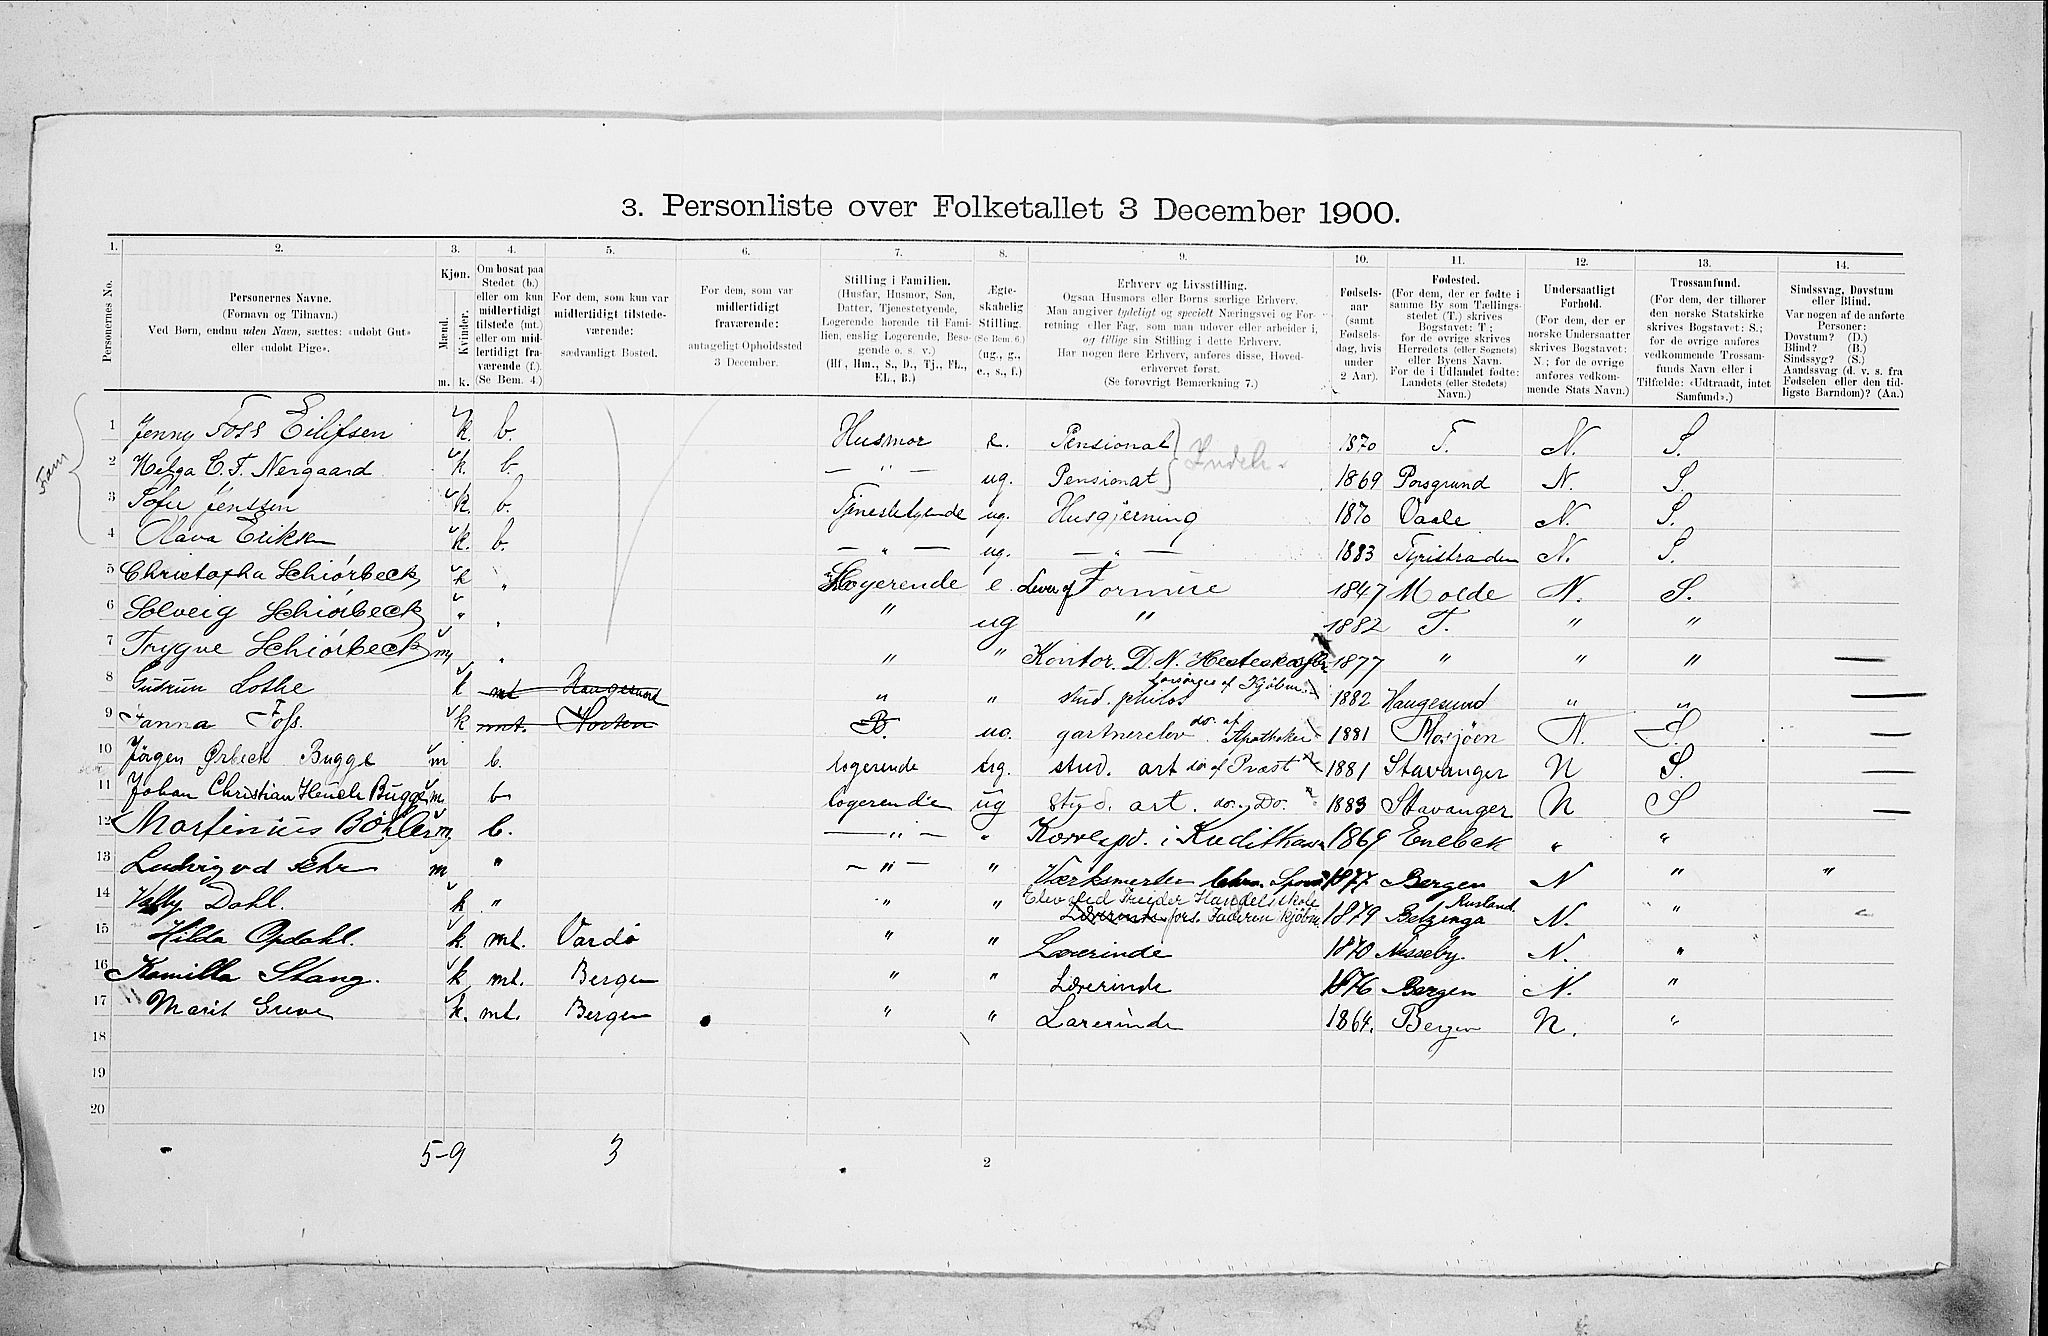 3. Personliste over Folketallet 3 December 1900.
1. 2. 3. 4. 5. 6. 7. 8. 9. 10. 11. 12. 13. 14.
Personernes No.
Personernes Navne.
(Fornavn og Tilnavn.)
Ved Børn, endnu uden Navn, sættes: «udøbt Gut»
eller «udøbt Pige».
Kjøn.
Mænd. Kvinder.
m. k.
Om bosat paa
Stedet (b.)
eller om kun
midlertidigt
tilstede (mt.)
eller om mid-
lertidigt fra-
værende (f.).
(Se Bem. 4.)
For dem, som kun var
midlertidigt tilstede-
værende:
sædvanligt Bosted.
For dem, som var
midlertidigt
fraværende:
antageligt Opholdssted
3 December.
Stilling i Familien.
(Husfar, Husmor, Søn,
Datter, Tjenestetyende,
Logerende hørende til Fami-
lien, enslig Logerende, Besø-
gende o. s. v.)
(Hf., Hm., S., D., Tj., FL.,
EL., B.)
Ægte-
skabelig
Stilling.
(Se Bem. 6.)
(ug., g.,
e., s., f.)
Erhverv og Livsstilling.
Ogsaa Husmors eller Børns særlige Erhverv.
Man angiver tydeligt og specielt Næringsvei og For-
retning eller Fag, som man udøver eller arbeider i,
og tillige sin Stilling i dette Erhverv.
Har nogen flere Erhverv, anføres disse, Hoved-
erhvervet først.
(Se forøvrigt Bemærkning 7.)
Fødsels-
aar
(samt
Fødsels-
dag, hvis
under
2 Aar).
Fødested.
(For dem, der er fødte i
samme By som Tællings-
stedet (T.) skrives
Bogstavet: T;
for de øvrige skrives
Herredets (eller Sognets)
eller Byens Navn.
For de i Udlandet fødte:
Landets (eller Stedets)
Navn.)
Undersaatligt
Forhold.
(For dem, der er
norske Undersaatter
skrives Bogstavet:
N.; for de øvrige
anføres vedkom-
mende Stats Navn.)
Trossamfund.
(For dem, der tilhører
den norske Statskirke
skrives Bogstavet: S.;
for de øvrige anføres
vedkommende Trossam-
funds Navn eller i
Tilfælde: «Udtraadt, intet
Samfund».)
Sindssvag, Døvstum
eller Blind.
Var nogen af de anførte
Personer:
Døvstum? (D.)
Blind? (B.)
Sindssyg? (S.)
Aandssvag (d. v. s. fra
Fødselen eller den tid-
ligste Barndom)? (Aa.)
1 Jenny Foss Eilifsen k. b. Husmor e. Pensionat 1870 T. N. S.
2 Helga C. F. Nergaard k. b. — " — ug. Pensionat 1869 Porsgrund N. S.
3 Sofie Jenssen k b. Tjenestetyende ug. Husgjerning 1870 Vaale N. S.
4 Olava Eriksen k. b. — " — ug. — " — 1883 Tyristranden N. S.
5 Christopha Schiørbeck k " Logerende e. Lever af Formue 1847 Molde N. S.
6 Solveig Schiørbeck " " " ug " 1882 T. " "
7 Trygve Schiørbeck m " " " Kontor. D. N. 1877 " " "
8 Gudrun Lothe k mt Haugesund " " stud. philos forsørges af Kjøbm. 1882 Haugesund " "
9 Fanna Foss. k mt. Horten B. ug. gartnerelev do. af Apotheker 1881 Mosjøen N. S.
10 Jørgen Ørbeck Bugge m b. logerende ug. stud. art do af Præst 1881 Stavanger N S.
11 Johan Christian Heuch Bugge m. b logerende ug stud. art. do. Do. 1883 Stavanger N S
12 Martinius Bøhler m b. — " — " Korresp. i 1869 Enebak " "
13 Ludvig m " — " — " Værksmester 1877 Bergen N " "
14 Valby Dahl. k " " " Elev ved Treider Handelsskole
Lærerinde fors. Faderen Kjøbm. 1879 Rusland N. "
15 Hilda Opdahl. k mt. Vardø " " Lærerinde 1870 Nesseby. N. "
16 Kamilla Stang. k mt. Bergen " " Lærerinde 1876 Bergen N. "
17 Marit Greve k. mt. Bergen " " Lærerinde 1864. Bergen N. "
18
19
20
5-9 3
2